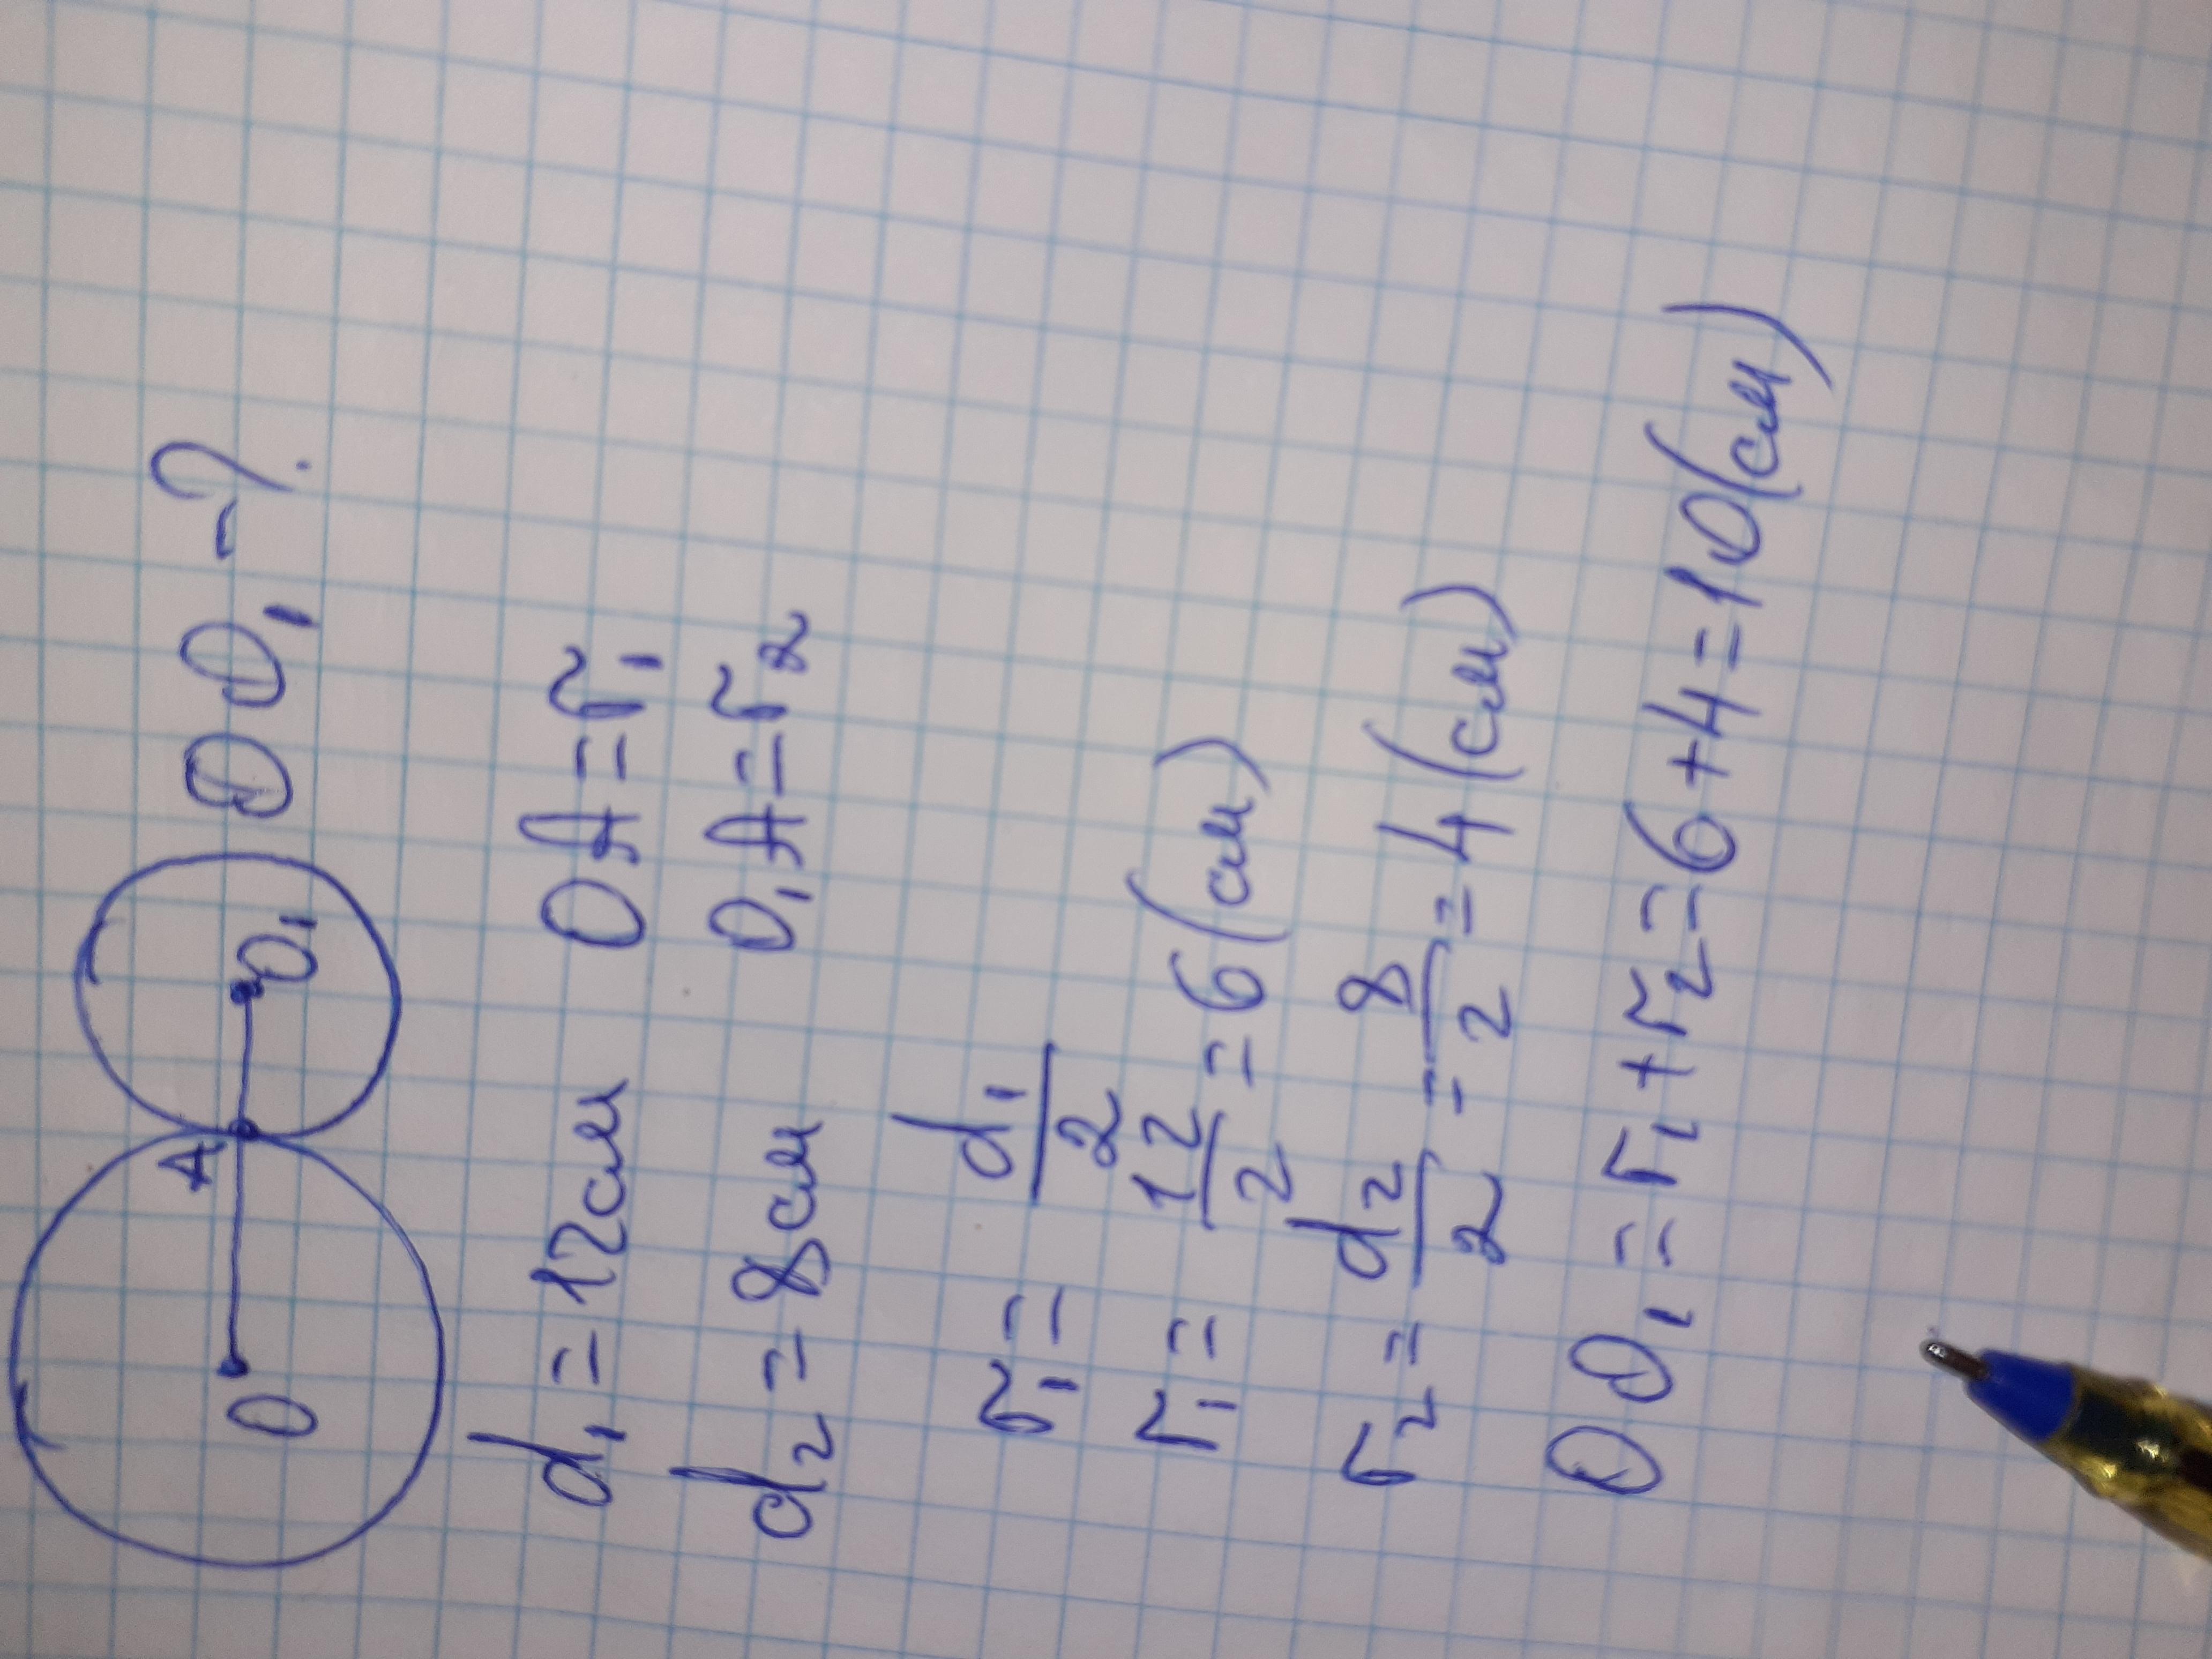 A
O
O₁
OO₁ - ?
d₁ = 12 см OA = r₁
d₂ = 8 см O₁A = r₂
r₁ = d₁/2
r₁ = 12/2 = 6 (см)
r₂ = d₂/2 = 8/2 = 4 (см)
OO₁ = r₁ + r₂ = 6 + 4 = 10 (см)